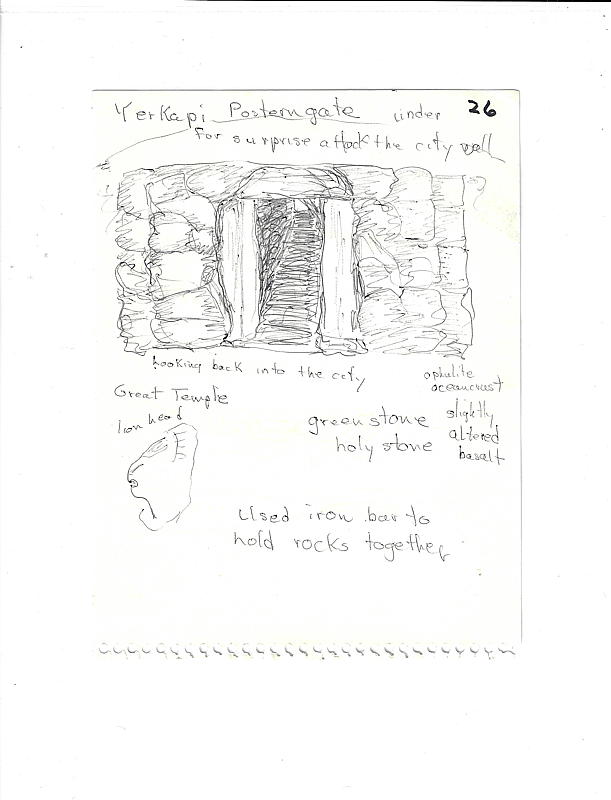 Yerkapi Posterngate under 26
For surprise attack the city wall
Looking back into the city
ophulite
oceancrust
slightly
altered
basalt
Great Temple
lion head
greenstone
holy stone
Used iron bar to
hold rocks together